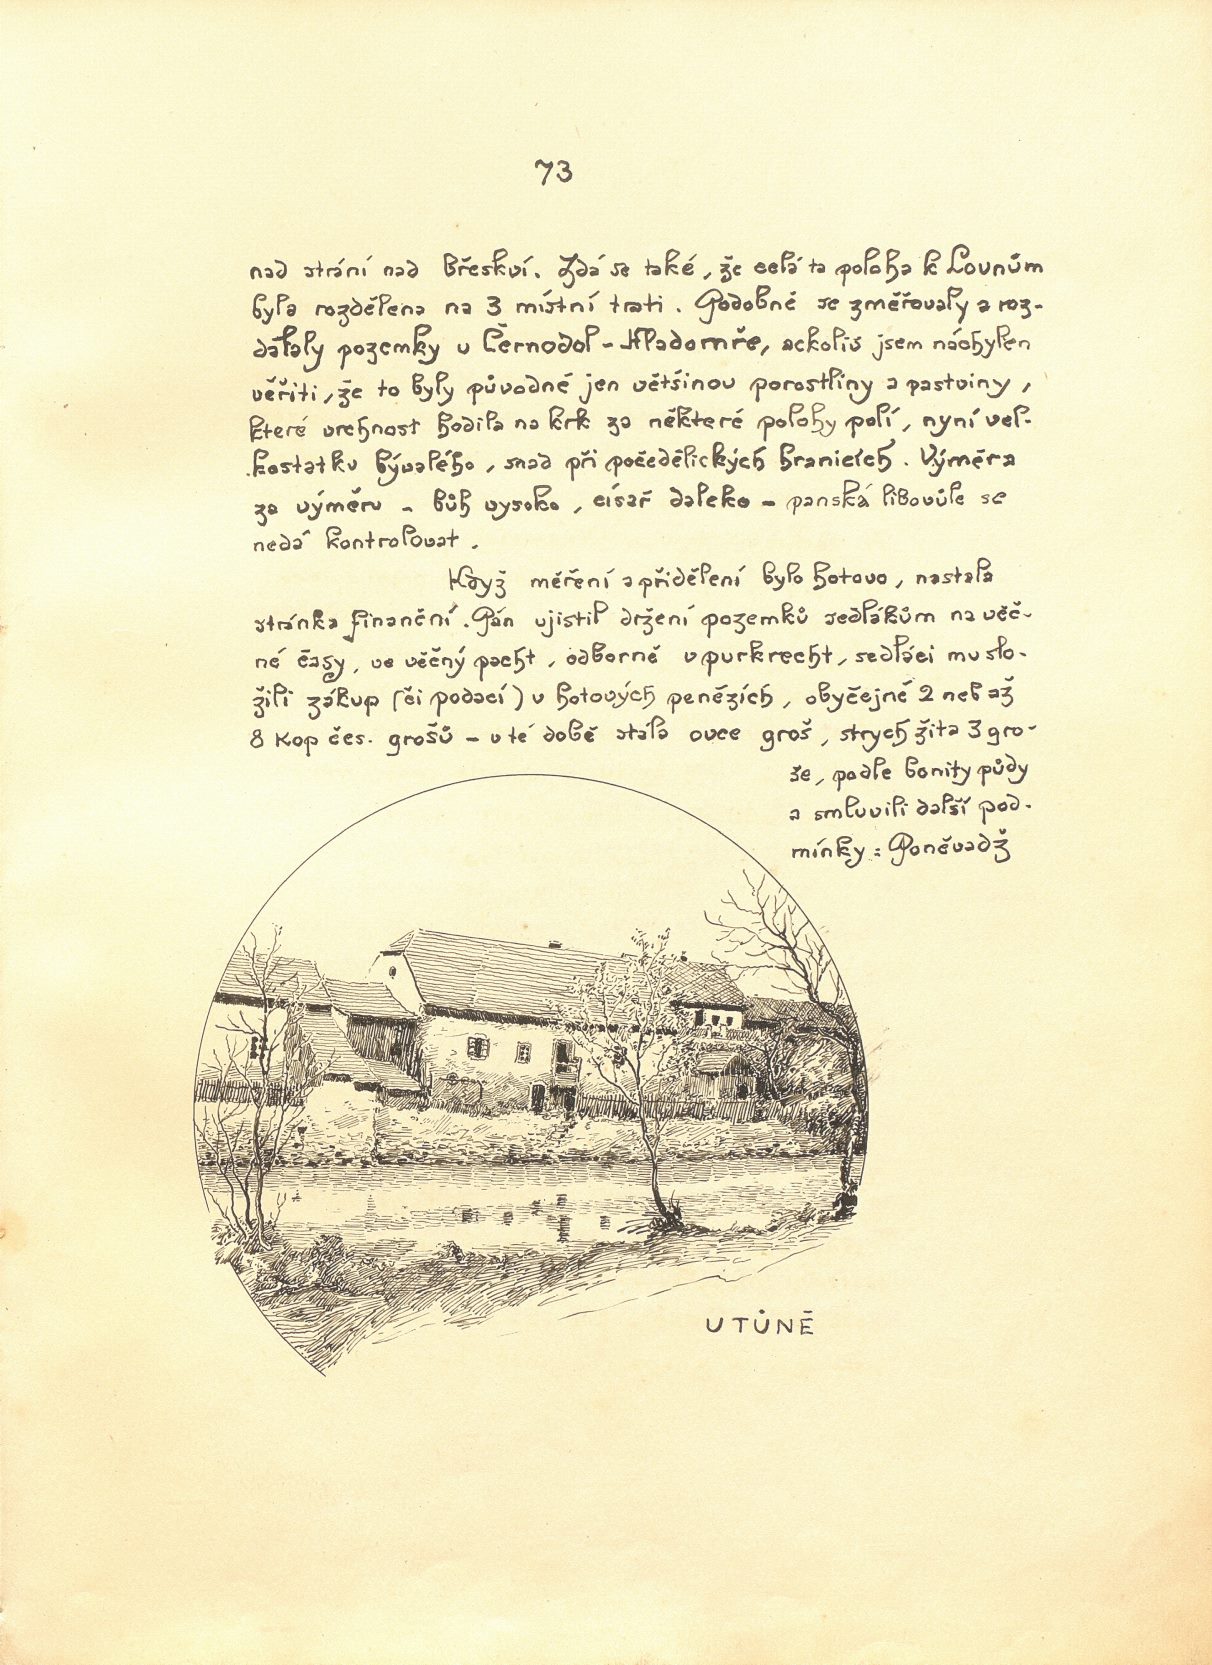 73
nad strání nad Břeskví. Zdá se také, že celá ta poloha k Lounům
byla rozdělena na 3 místní trati. Podobně se změřovaly a roz-
dálaly pozemky v Černodol - Hladomře, ačkoliv jsem náchylen
věřiti, že to byly původně jen většinou porostliny a pastviny,
které vrchnost hodila na krk za některé polohy polí, nyní vel-
kostatku bývalého, snad při počedělických hranicích. Výměra
za výměru - bůh vysoko, císař daleko - panská libovůle se
nedá kontrolovat.
Když měření a přidělení bylo hotovo, nastala
stránka finanční. Pán ujistil držení pozemků sedlákům na věč-
né časy, ve věčný pacht, odborně v purkrecht, sedláci mu slo-
žili zákup (či podací) v hotových penězích, obyčejně 2 neb až
8 kop čes. grošů - v té době stála ovce groš, strych žita 3 gro-
še, podle bonity půdy
a smluvili další pod-
mínky: Poněvadž
U TŮNĚ